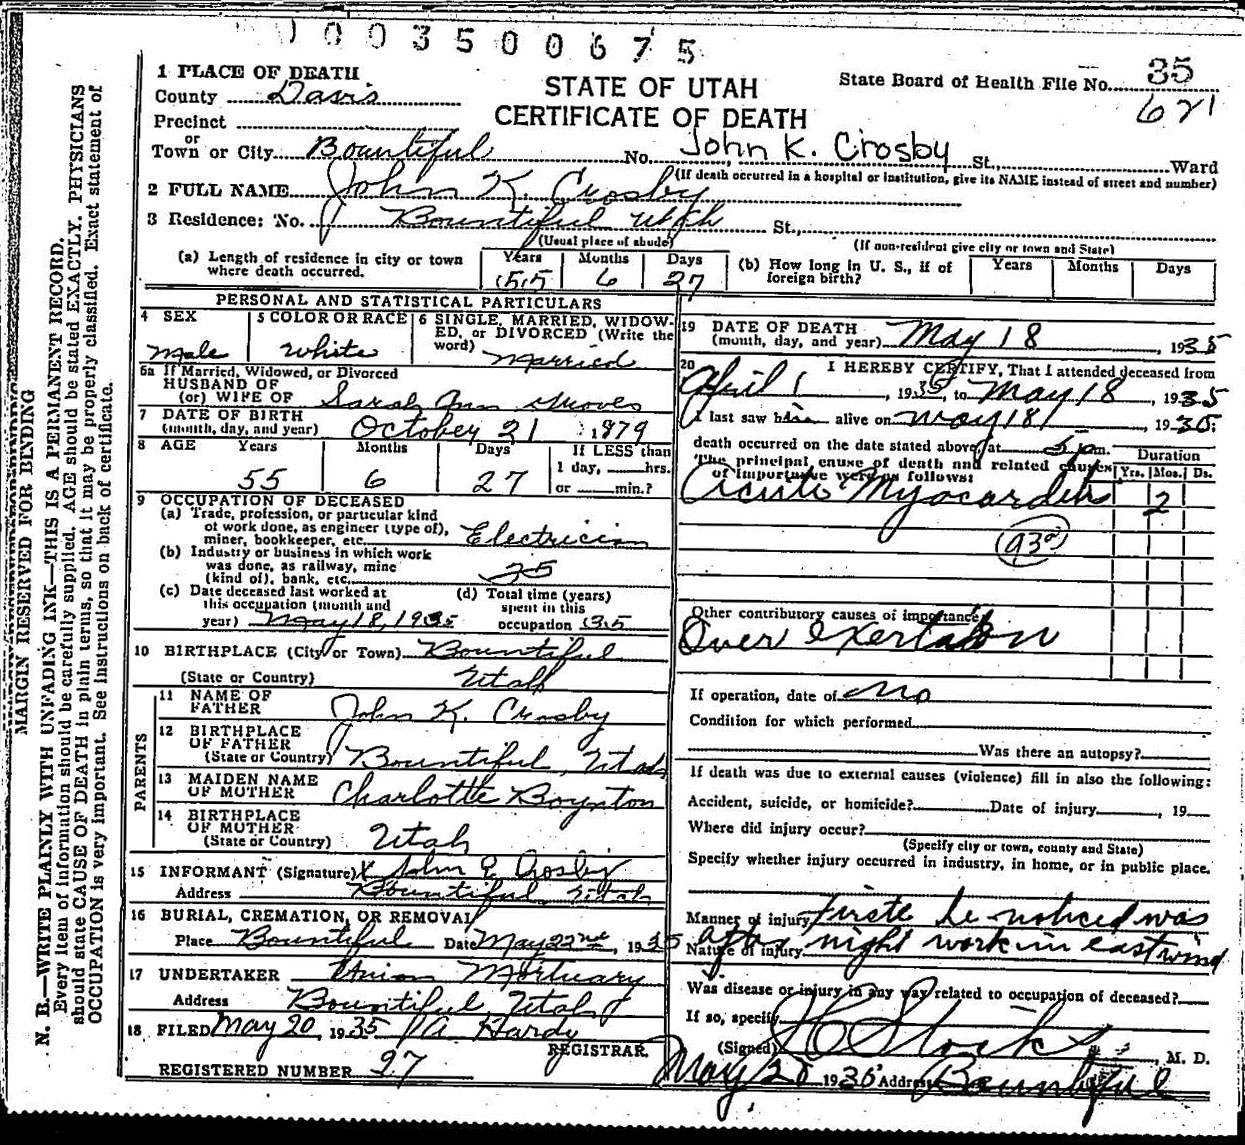 1003500675
1 PLACE OF DEATH
County Davis
Precinct
or
Town or City Bountiful
STATE OF UTAH
CERTIFICATE OF DEATH
State Board of Health File No. 35
671
No. John K. Crosby St., Ward
(If death occurred in a hospital or institution, give its NAME instead of street and number)
2 FULL NAME John K. Crosby
3 Residence: No. Bountiful Utah St.,
(Usual place of abode)
(If non-resident give city or town and State)
(a) Length of residence in city or town where death occurred. Years 55 Months 6 Days 27
(b) How long in U. S., if of foreign birth? Years Months Days
PERSONAL AND STATISTICAL PARTICULARS
4 SEX Male
5 COLOR OR RACE White
6 SINGLE, MARRIED, WIDOWED, or DIVORCED (Write the word) Married
6a If Married, Widowed, or Divorced
HUSBAND OF
(or) WIFE OF Sarah Ann Groves
7 DATE OF BIRTH
(month, day, and year) October 21 1879
8 AGE Years 55 Months 6 Days 27
If LESS than
1 day, hrs.
or min.?
9 OCCUPATION OF DECEASED
(a) Trade, profession, or particular kind
of work done, as engineer (type of),
miner, bookkeeper, etc. Electrician
(b) Industry or business in which work
was done, as railway, mine
(kind of), bank, etc. 35
(c) Date deceased last worked at
this occupation (month and
year) May 18, 1935
(d) Total time (years)
spent in this
occupation 35
10 BIRTHPLACE (City or Town) Bountiful
(State or Country) Utah
PARENTS
11 NAME OF
FATHER John K. Crosby
12 BIRTHPLACE
OF FATHER
(State or Country) Bountiful, Utah
13 MAIDEN NAME
OF MOTHER Charlotte Boynton
14 BIRTHPLACE
OF MOTHER
(State or Country) Utah
15 INFORMANT (Signature) X John E Crosby
Address Bountiful Utah
16 BURIAL, CREMATION, OR REMOVAL
Place Bountiful Date May 22nd, 1935
17 UNDERTAKER Union Mortuary
Address Bountiful Utah
18 FILED May 20, 1935 A Hardy
REGISTRAR.
REGISTERED NUMBER 27
19 DATE OF DEATH
(month, day, and year) May 18, 1935
20 I HEREBY CERTIFY, That I attended deceased from
April 1, 1935, to May 18, 1935
I last saw him alive on May 18, 1935;
death occurred on the date stated above, at 5 pm.
The principal cause of death and related causes
of importance were as follows:
Duration
Yrs. Mos. Ds.
Acute Myocarditis 2
93a
Other contributory causes of importance
Over exertation
If operation, date of no
Condition for which performed
Was there an autopsy?
If death was due to external causes (violence) fill in also the following:
Accident, suicide, or homicide? Date of injury, 19
Where did injury occur?
(Specify city or town, county and State)
Specify whether injury occurred in industry, in home, or in public place.
Manner of injury he noticed was
Nature of injury after night work in east wind
Was disease or injury in any way related to occupation of deceased?
If so, specify
(Signed) Stocks, M. D.
May 20 1935 Address Bountiful
MARGIN RESERVED FOR BINDING
N. B.—WRITE PLAINLY WITH UNFADING INK—THIS IS A PERMANENT RECORD.
Every item of information should be carefully supplied. AGE should be stated EXACTLY. PHYSICIANS
should state CAUSE OF DEATH in plain terms, so that it may be properly classified. Exact statement of
OCCUPATION is very important. See instructions on back of certificate.